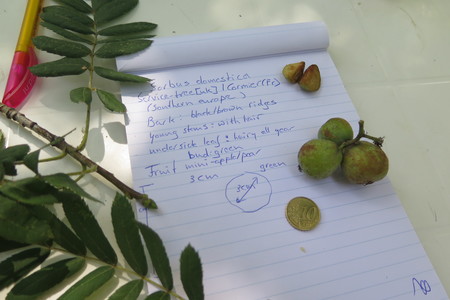 Sorbus domestica
Service tree [UK] / Cormier (Fr)
(Southern europe...)
Bark - black/brown ridges
Young stems: with hair
underside leaf: hairy all year
bud green
fruit mini-apple/pear
3cm green
3cm